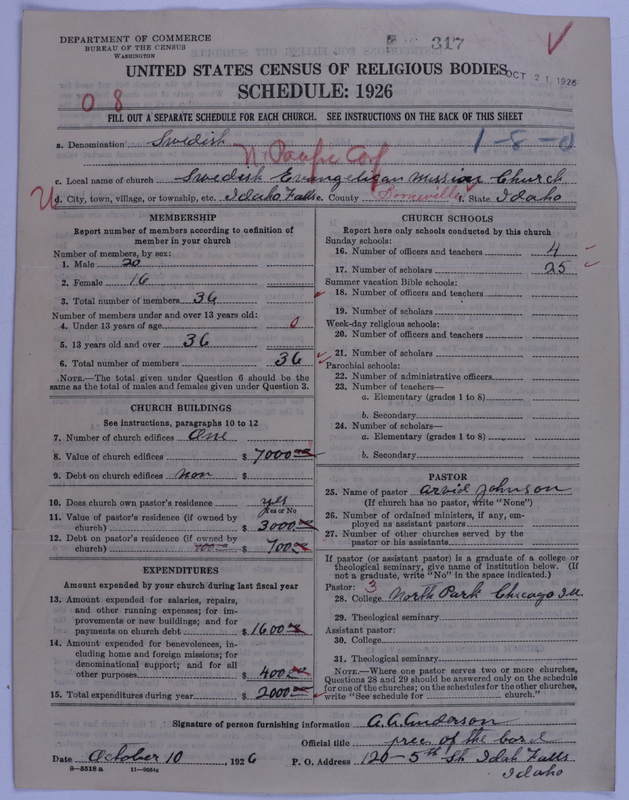 DEPARTMENT OF COMMERCE
BUREAU OF THE CENSUS
WASHINGTON
317
UNITED STATES CENSUS OF RELIGIOUS BODIES
OCT 21 1926
SCHEDULE: 1926
0 8
FILL OUT A SEPARATE SCHEDULE FOR EACH CHURCH. SEE INSTRUCTIONS ON THE BACK OF THIS SHEET
a. Denomination Swedish
1-8-0
N. Pacific Conf
c. Local name of church Swedish Evangelican Mission Church
d. City, town, village, or township, etc. Idaho Falls e. County Bonneville f. State Idaho
MEMBERSHIP
Report number of members according to definition of
member in your church
Number of members, by sex:
1. Male 20
2. Female 16
3. Total number of members 36
Number of members under and over 13 years old:
4. Under 13 years of age 0
5. 13 years old and over 36
6. Total number of members 36
NOTE.—The total given under Question 6 should be the
same as the total of males and females given under Question 3.
CHURCH BUILDINGS
See instructions, paragraphs 10 to 12
7. Number of church edifices One
8. Value of church edifices $ 7000 00
9. Debt on church edifices non
10. Does church own pastor's residence yes
Yes or No
11. Value of pastor's residence (if owned by
church) $ 3000
12. Debt on pastor's residence (if owned by
church) 700 $ 700
EXPENDITURES
Amount expended by your church during last fiscal year
13. Amount expended for salaries, repairs,
and other running expenses; for im-
provements or new buildings; and for
payments on church debt $ 1600
14. Amount expended for benevolences, in-
cluding home and foreign missions; for
denominational support; and for all
other purposes $ 400
15. Total expenditures during year $ 2000
CHURCH SCHOOLS
Report here only schools conducted by this church
Sunday schools:
16. Number of officers and teachers 4
17. Number of scholars 25
Summer vacation Bible schools:
18. Number of officers and teachers
19. Number of scholars
Week-day religious schools:
20. Number of officers and teachers
21. Number of scholars
Parochial schools:
22. Number of administrative officers
23. Number of teachers—
a. Elementary (grades 1 to 8)
b. Secondary
24. Number of scholars—
a. Elementary (grades 1 to 8)
b. Secondary
PASTOR
25. Name of pastor Arvid Johnson
(If church has no pastor, write "None")
26. Number of ordained ministers, if any, em-
ployed as assistant pastors
27. Number of other churches served by the
pastor or his assistants
If pastor (or assistant pastor) is a graduate of a college or
theological seminary, give name of institution below. (If
not a graduate, write "No" in the space indicated.)
Pastor: 3
28. College North Park Chicago Ill.
29. Theological seminary
Assistant pastor:
30. College
31. Theological seminary
NOTE.—Where one pastor serves two or more churches,
Questions 28 and 29 should be answered only on the schedule
for one of the churches; on the schedules for the other churches,
write "See schedule for church."
Signature of person furnishing information A. A. Anderson
Official title prec. of the bord
Date October 10, 1926 P. O. Address 120-5th St. Idah Falls
8-5518 a
Idaho